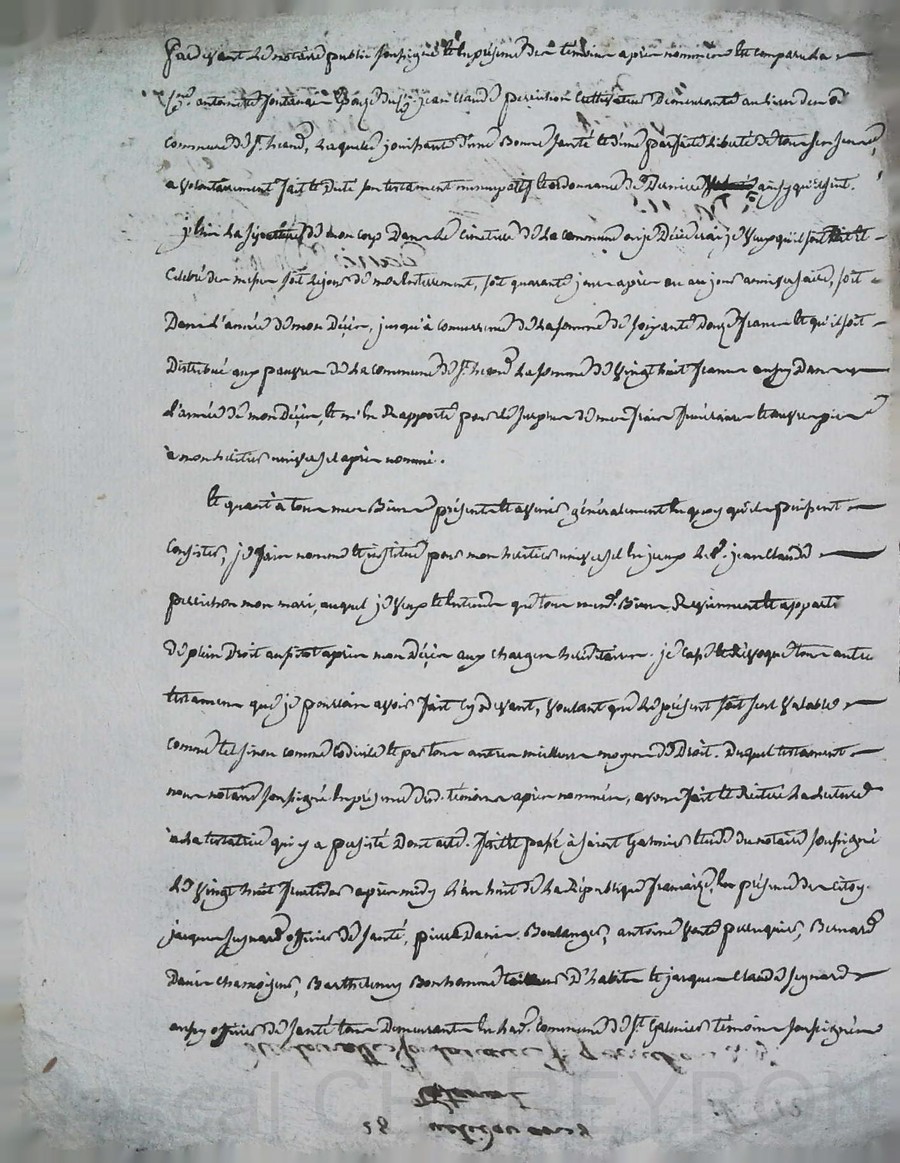 Pardevant le notaire public soussigné et en présence des témoins après nommés est comparue
antoinette fontanay Epouze du Cn. jean Claude perichon Cultivateur Demeurante au lieu de
commune de St. heand, laquelle jouissante d'une Bonne santé et d'une parfaite liberté de tous ses sens,
a volontairement fait et dicté son testament nuncupatif et ordonnance de Derniere ainsy qu'il suit.
j'Elis la sépulture de mon corp Dans le Cimetiere de la commune où je Décéderai, je veux qu'il soit Dit et
Célébré des messes soit le jour de mon enterrement, soit quarante jours après ou au jour anniversaire, soit
Dans l'année de mon Décès, jusqu'à concurrence de la somme de soixante Douze francs et qu'il soit
Distribué aux pauvres de la commune de St. heand la somme de vingt huit francs aussy Dans
l'année de mon Décès, et m'En Rapporte pour le surplus de mes frais funéraires et œuvres pies
à mon héritier universel après nommé.
Et quant à tous mes Biens présents et avenir généralement En quoy qu'ils puissent
Consister, je fais nomme et institue pour mon héritier universel En jceux le Cn. jean Claude
perichon mon mari, auquel je veux et Entends que tous mesd. Biens Reviennent et apparti
de plein Droit aussitot après mon Décès aux charges héréditaires. je Casse et Révoque tous autres
testamens que je pourrais avoir fait cy devant, voulant que le présent soit seul valable
comme tel sinon comme Codicile et par tous autres meilleurs moyens de Droit. Duquel testament
nous notaire soussigné En présence desd. témoins après nommés, avons fait et Réitéré la lecture
à la testatrice qui y a persisté Dont acte. fait et passé à saint Galmier Etude du notaire soussigné
le vingt huit fructidor après midy l'an huit de la République française, En présence des Citoy.
jacques seignard officier de santé, pierre Danis Boulanger, antoine perruquier, Bernard
Danis chamoiseur, Barthelemy Bonhomme tailleur D'habits et jacques Claude seignard
aussy officier de santé tous Demeurants En lad. commune de St. Galmier témoins soussignés